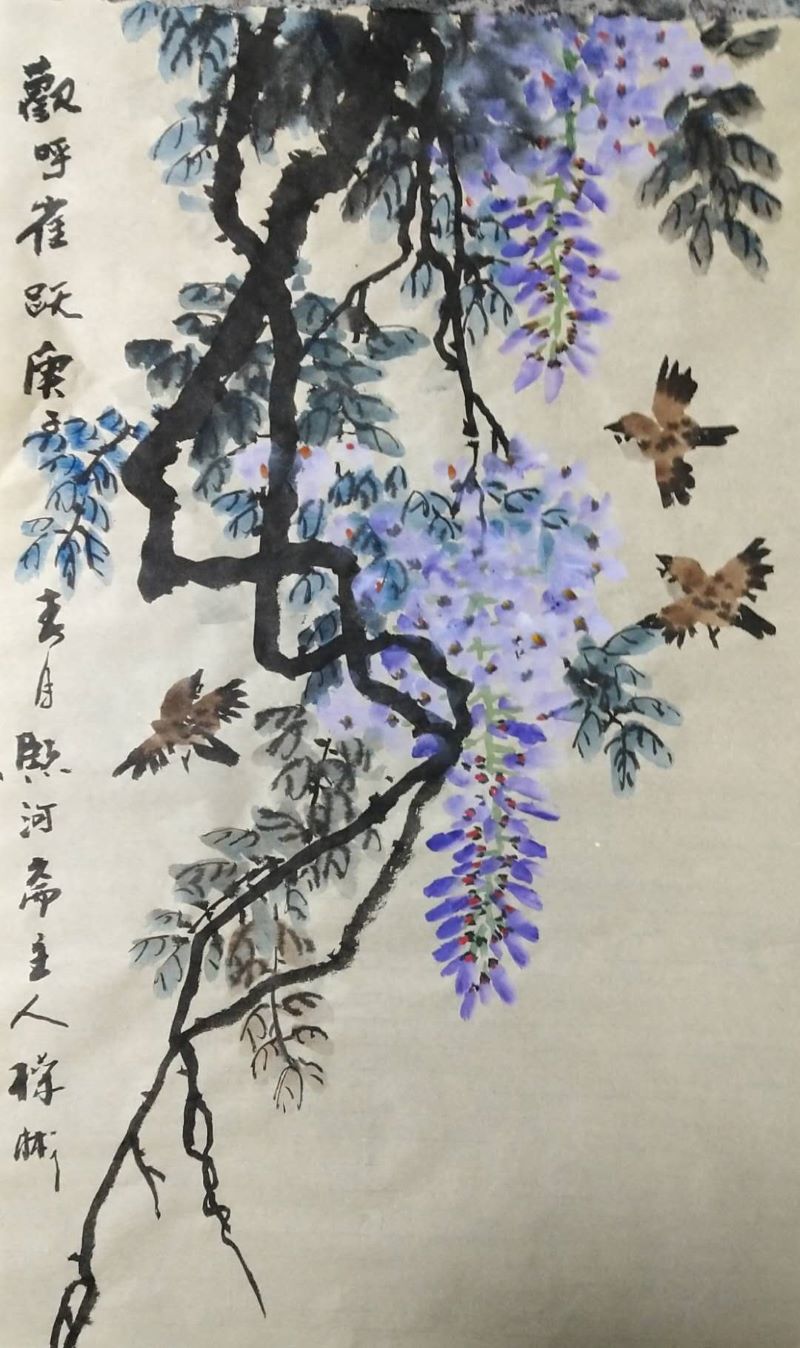 歡呼雀跃庚子春月熙河斋主人彬